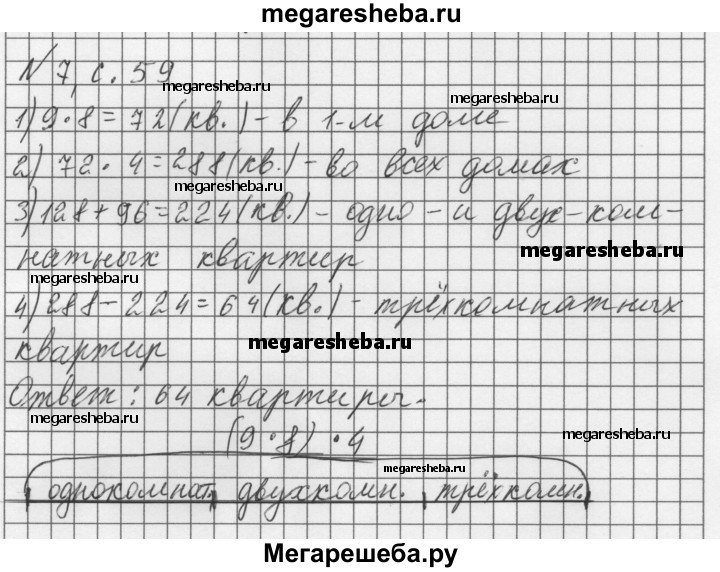 megaresheba.ru
№7, с. 59
megaresheba.ru
megaresheba.ru
1) 9·8=72(кв.) - в 1-м доме
2) 72·4=288(кв.) - во всех домах
megaresheba.ru
3) 128+96=224(кв.) - одно - и двух-ком-
натных квартир
megaresheba.ru
megaresheba.ru
4) 288-224=64(кв.) - трёхкомнатных
квартир
megaresheba.ru
Ответ: 64 квартиры.
megaresheba.ru
(9·8)·4
megaresheba.ru
megaresheba.ru
однокомнат. двухкомн. трёхкомн.
Мегарешеба.ру